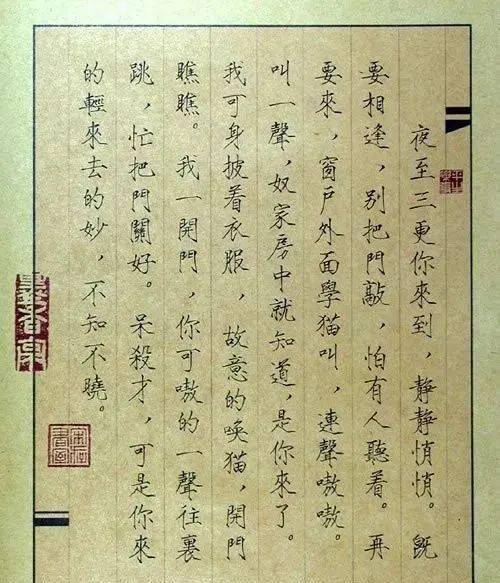 夜至三更你來到，静静悄悄。既
要相逢，别把門敲，怕有人聽着。再
要來，窗户外面學猫叫，連聲嗷嗷。
叫一聲，奴家房中就知道，是你來了。
我可身披着衣服，故意的唤猫，開門
瞧瞧。我一開門，你可嗷的一聲往裏
跳，忙把門關好。呆殺才，可是你來
的輕來去的妙，不知不曉。